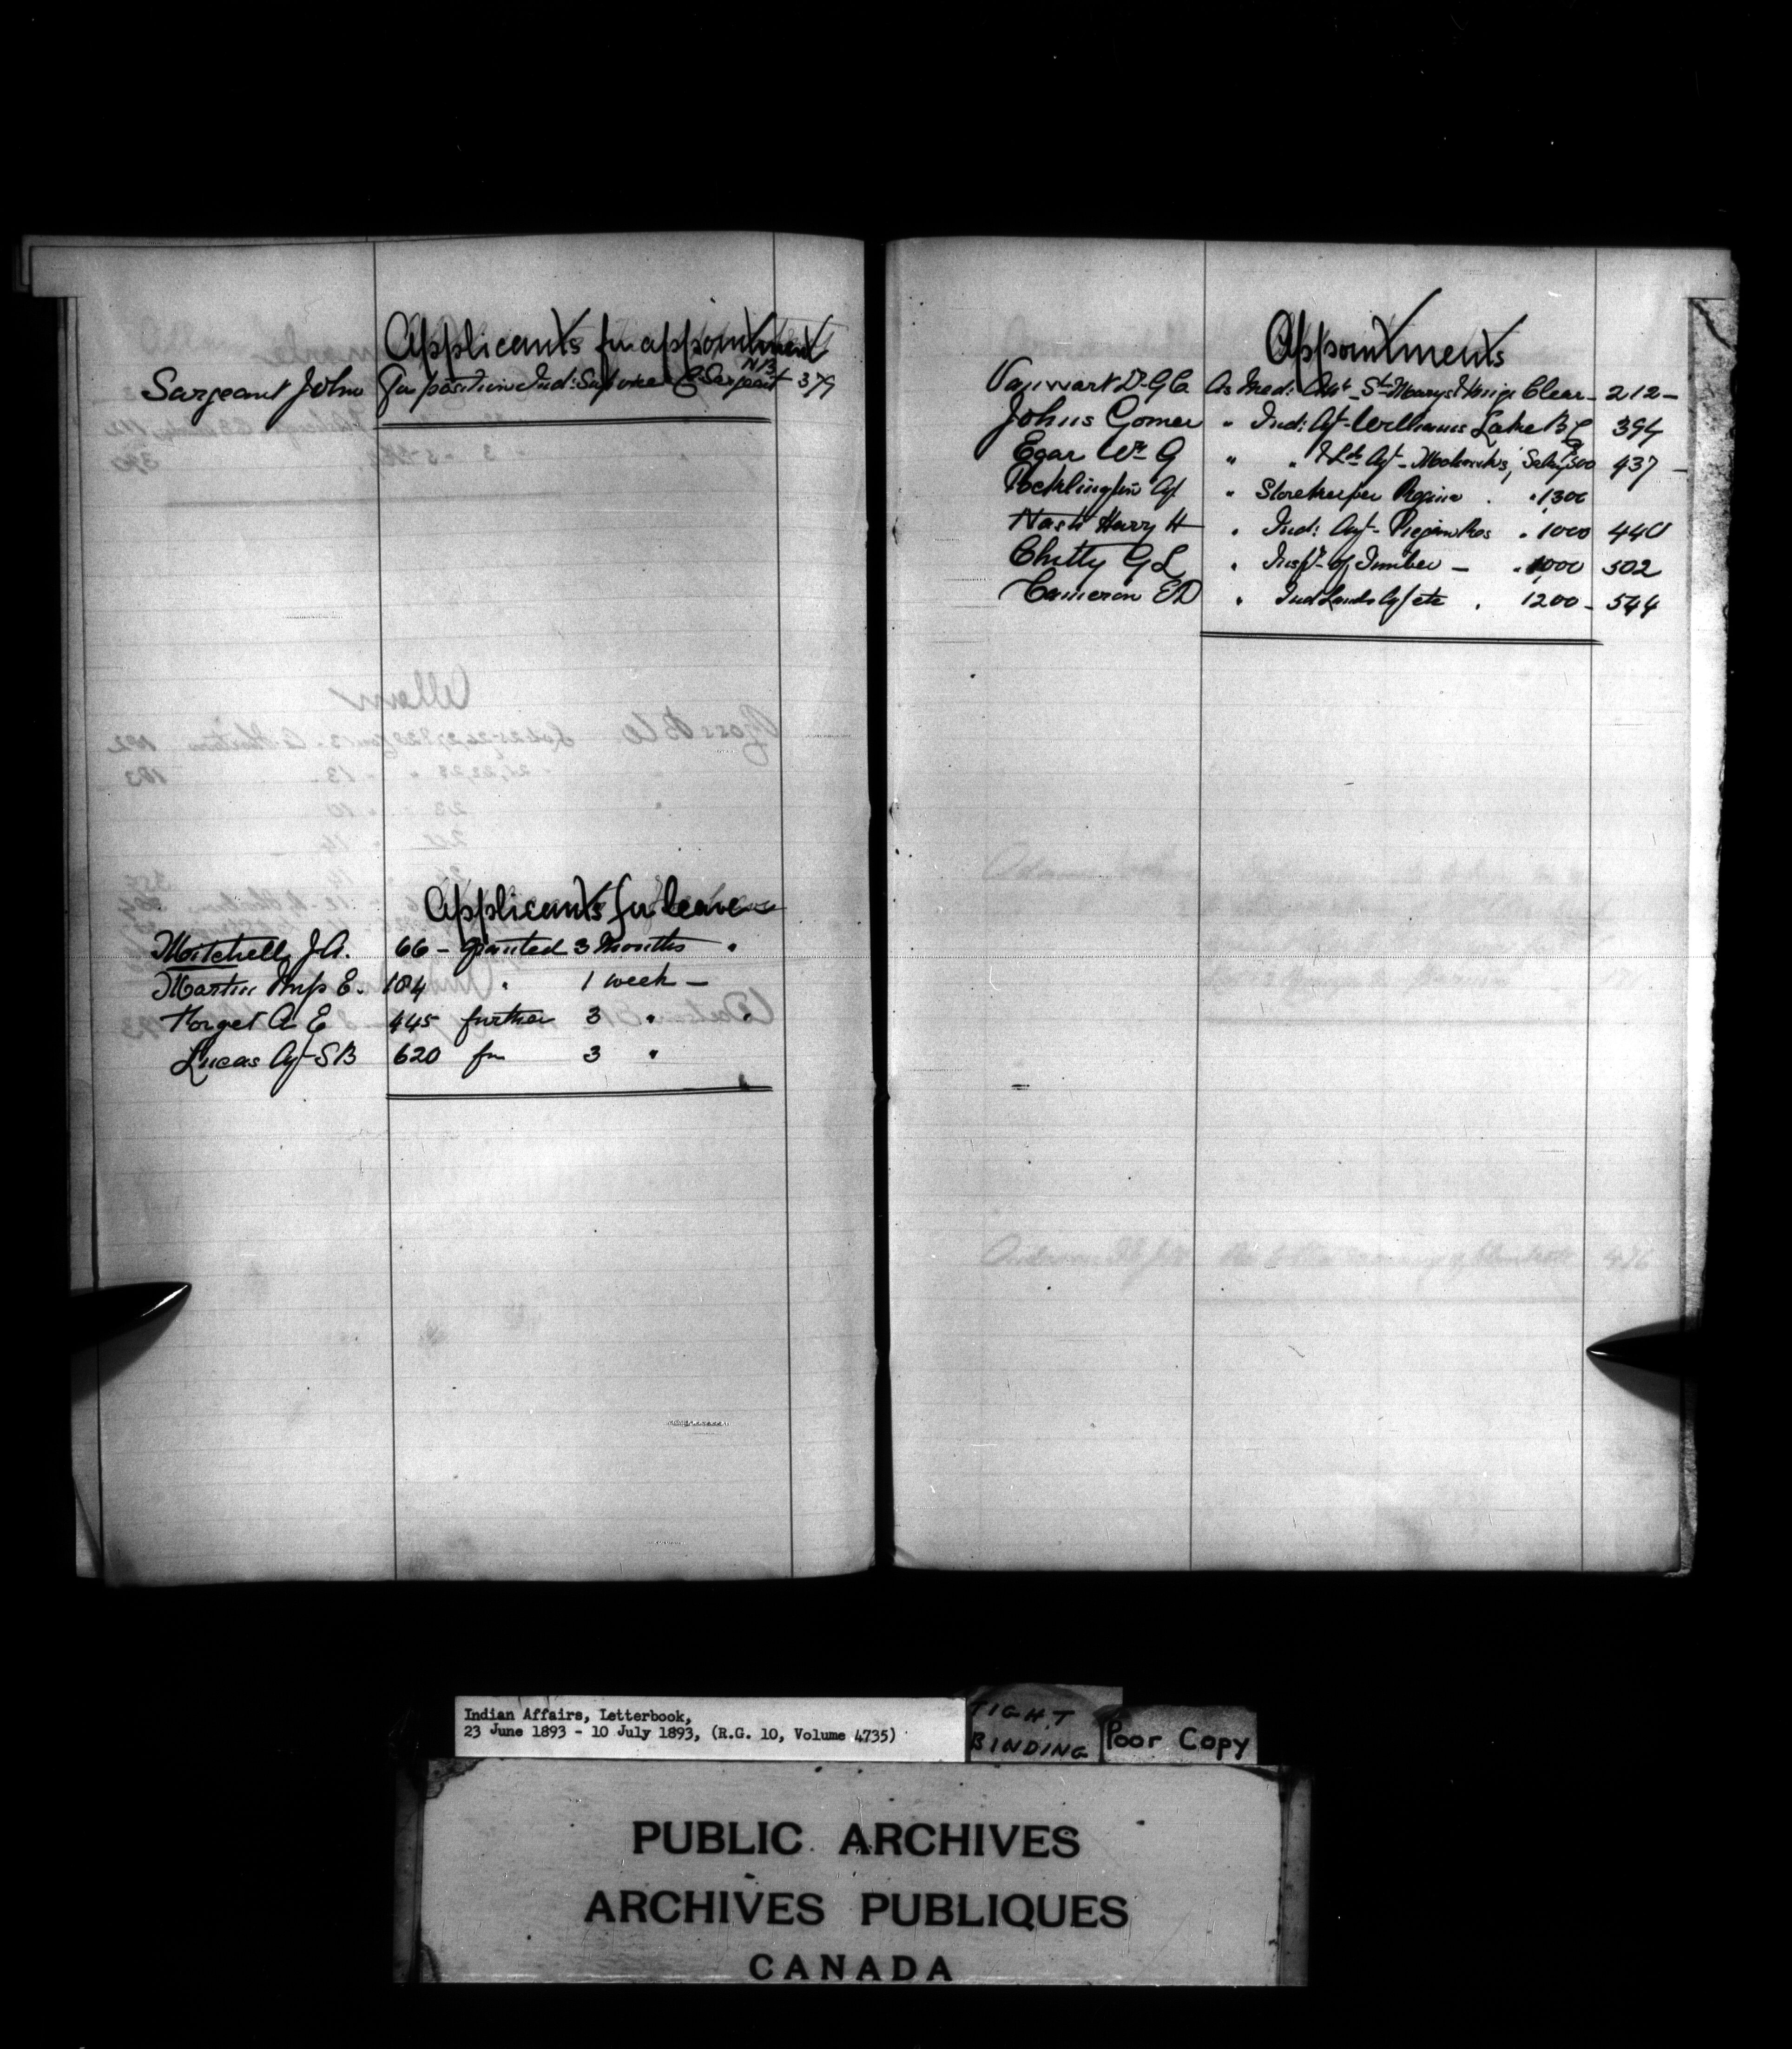 Applicants for appointment
N B
Sargeant John For position Ind: Sup vice C Sargeant 379
Applicants for leave
Mitchell J. A. 66 - granted 3 Months "
Martin Insp E. 104 " 1 week -
Forget A E 445 further 3 " "
Lucas Agt S B 620 for 3 "
Appointments
Vanwart Dr G C As Med: Clear - 212 -
Johns Gomer " Ind: Agt - Williams Lake B C 394
Egar Wm G " " & Lds Agt - Salary 437 -
Pocklington Agt " Storekeeper Regina . " 1300
Nash Harry H " Ind: Agt - Piegan Res " 1000 440
Chitty G L " Inspr of Timber - " 1000 502
Cameron E D " Ind Lands Agt etc " 1200 - 544
Indian Affairs, Letterbook,
23 June 1893 - 10 July 1893, (R.G. 10, Volume 4735)
TIGHT
BINDING
Poor Copy
PUBLIC ARCHIVES
ARCHIVES PUBLIQUES
CANADA